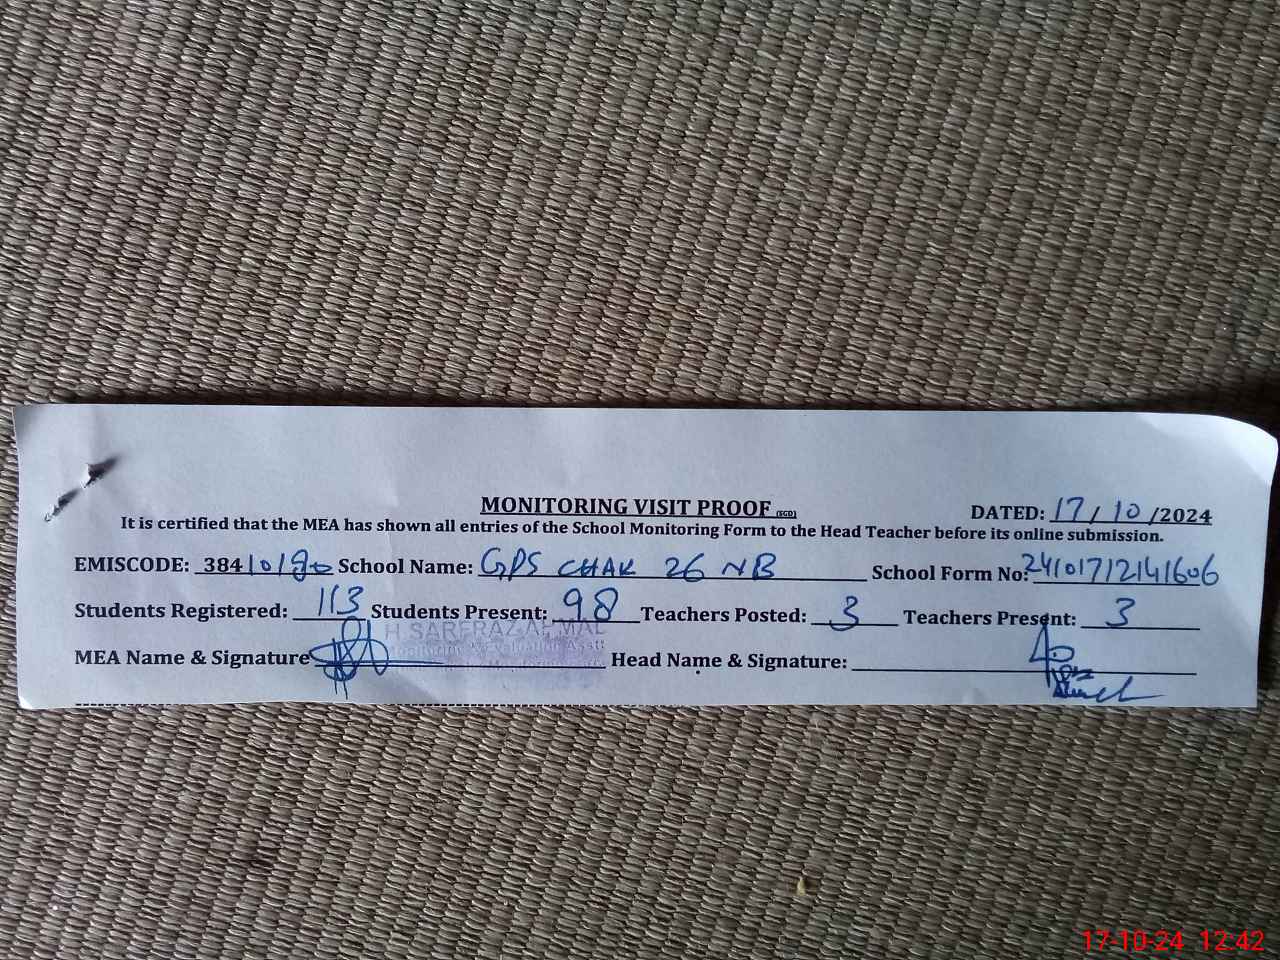 MONITORING VISIT PROOF (SGD) DATED: 17/10/2024
It is certified that the MEA has shown all entries of the School Monitoring Form to the Head Teacher before its online submission.
EMISCODE: 384 School Name: GPS CHAK 26 NB School Form No: 24101712141606
Students Registered: 113 Students Present: 98 Teachers Posted: 3 Teachers Present: 3
H SARFRAZ
Monitoring & Evaluation Asstt
MEA Name & Signature Head Name & Signature:
17-10-24 12:42